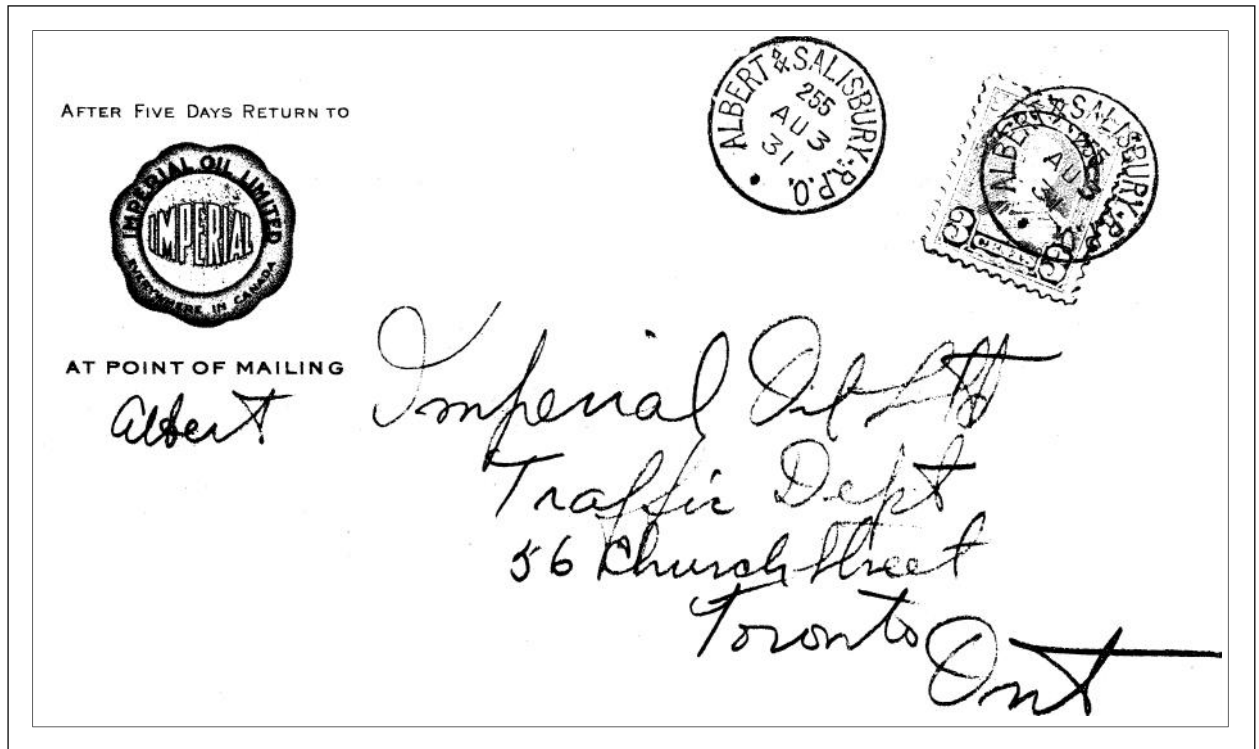 AFTER FIVE DAYS RETURN TO
IMPERIAL OIL LIMITED
IMPERIAL
EVERYWHERE IN CANADA
AT POINT OF MAILING
Albert
ALBERT & SALISBURY-R.P.O.
255
AU 3
31
ALBERT & SALISBURY-R.P.
255
AU 3
31
3 3
Imperial Oil Ltd
Traffic Dept
56 Church Street
Toronto Ont